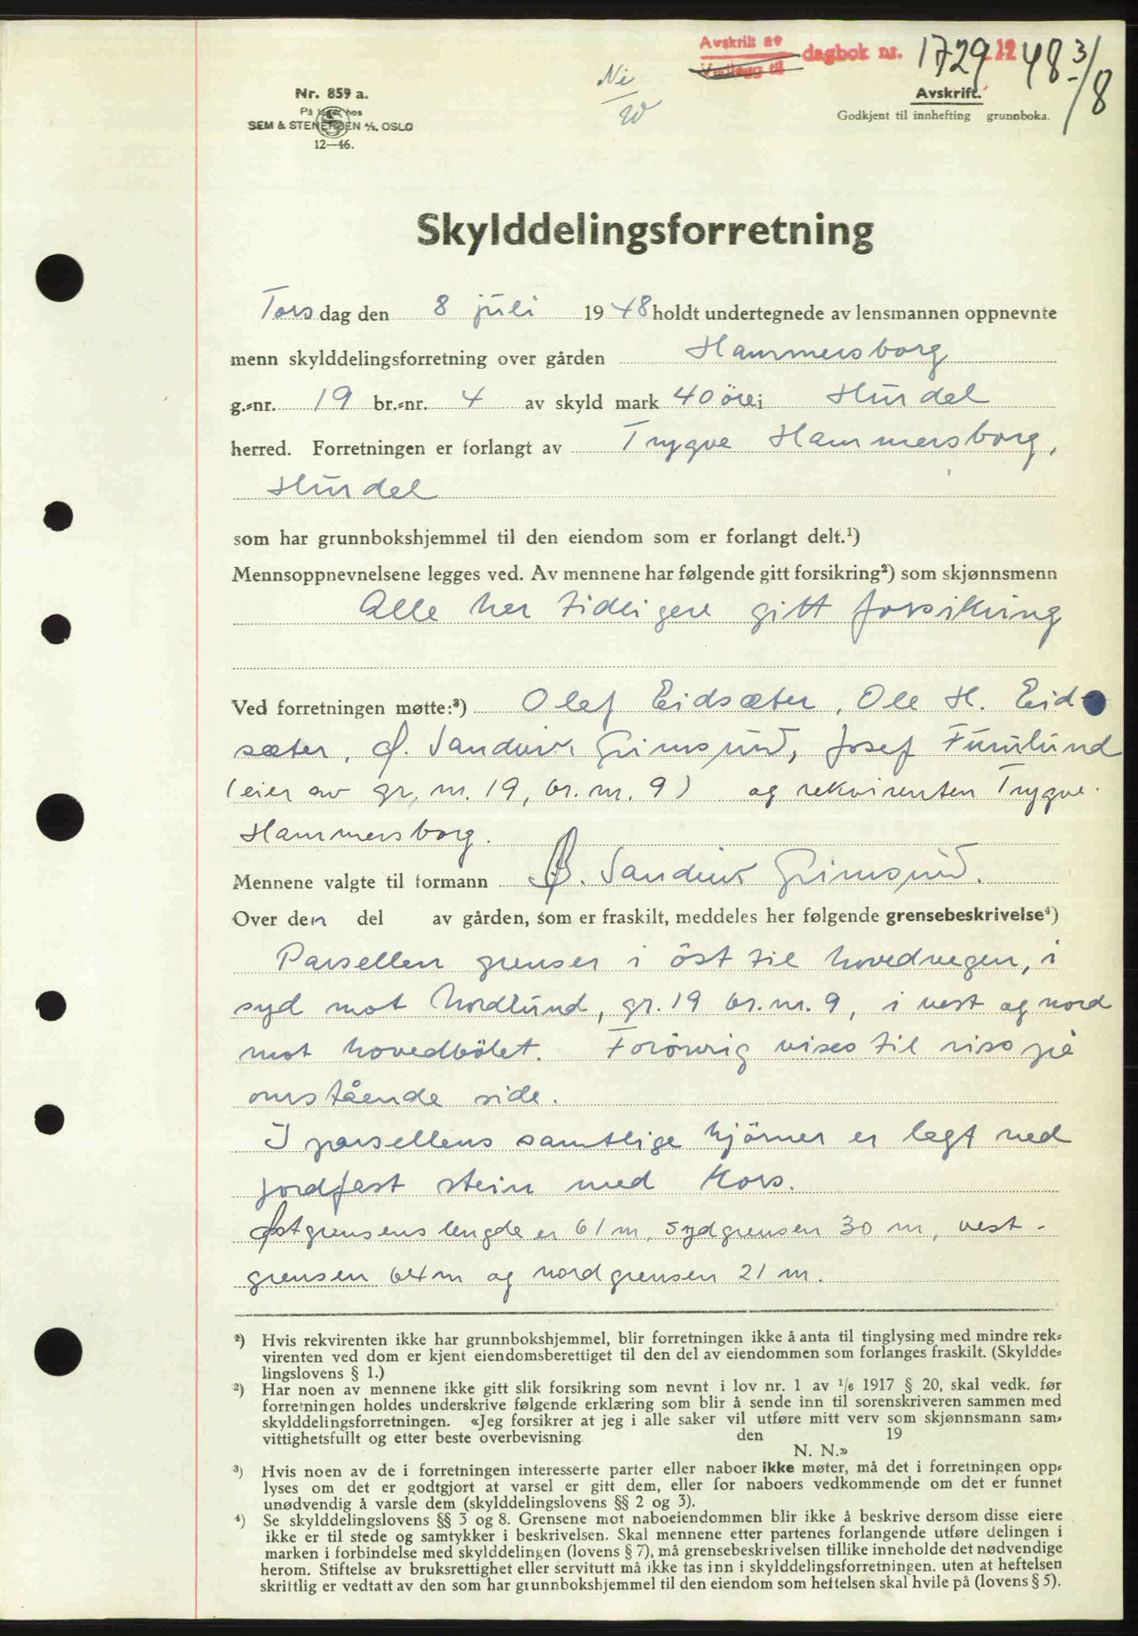 Avskrift av
Vedlegg til
dagbok nr. 1729 1948 3/8
Nr. 859 a.
På lager hos
SEM & STENERSEN A/S. OSLO
12—46.
Avskrift.
Godkjent til innhefting grunnboka.
Skylddelingsforretning
Torsdag den 8 juli 1948 holdt undertegnede av lensmannen oppnevnte
menn skylddelingsforretning over gården Hammersborg
g.-nr. 19 br.-nr. 4 av skyld mark 40 öre i Hurdal
herred. Forretningen er forlangt av Trygve Hammersborg,
Hurdal
som har grunnbokshjemmel til den eiendom som er forlangt delt.¹)
Mennsoppnevnelsene legges ved. Av mennene har følgende gitt forsikring²) som skjønnsmenn
Alle har tidligere gitt forsikring
Ved forretningen møtte:³) Olaf Eidsæter, Ole H. Eid-
sæter, Ø. Sandvik Grimsrud, Josef Furulund
(eier av gr. nr. 19, br. nr. 9) og rekvirenten Trygve
Hammersborg.
Mennene valgte til formann Ø. Sandvik Grimsrud.
Over den del av gården, som er fraskilt, meddeles her følgende grensebeskrivelse⁴)
Parsellen grenser i öst til hovedvegen, i
syd mot Nordlund, gr. 19 br. nr. 9, i vest og nord
mot hovedbölet. Forövrig vises til riss på
omstående side.
I parsellens samtlige hjörner er lagt ned
jordfast stein med kors.
Østgrensens lengde er 61 m, sydgrensen 30 m, vest-
grensen 64 m og nordgrensen 21 m.
¹) Hvis rekvirenten ikke har grunnbokshjemmel, blir forretningen ikke å anta til tinglysing med mindre rek-
virenten ved dom er kjent eiendomsberettiget til den del av eiendommen som forlanges fraskilt. (Skyldde-
lingslovens § 1.)
²) Har noen av mennene ikke gitt slik forsikring som nevnt i lov nr. 1 av 1/6 1917 § 20, skal vedk. før
forretningen holdes underskrive følgende erklæring som blir å sende inn til sorenskriveren sammen med
skylddelingsforretningen. «Jeg forsikrer at jeg i alle saker vil utføre mitt verv som skjønnsmann sam-
vittighetsfullt og etter beste overbevisning den 19
N. N.»
³) Hvis noen av de i forretningen interesserte parter eller naboer ikke møter, må det i forretningen opp-
lyses om det er godtgjort at varsel er gitt dem, eller for naboers vedkommende om det er funnet
unødvendig å varsle dem (skylddelingslovens §§ 2 og 3).
⁴) Se skylddelingslovens §§ 3 og 8. Grensene mot naboeiendommen blir ikke å beskrive dersom disse eiere
ikke er til stede og samtykker i beskrivelsen. Skal mennene etter partenes forlangende utføre delingen i
marken i forbindelse med skylddelingen (lovens § 7), må grensebeskrivelsen tillike inneholde det nødvendige
herom. Stiftelse av bruksrettighet eller servitutt må ikke tas inn i skylddelingsforretningen. uten at heftelsen
skriftlig er vedtatt av den som har grunnbokshjemmel til den eiendom som heftelsen skal hvile på (lovens § 5).